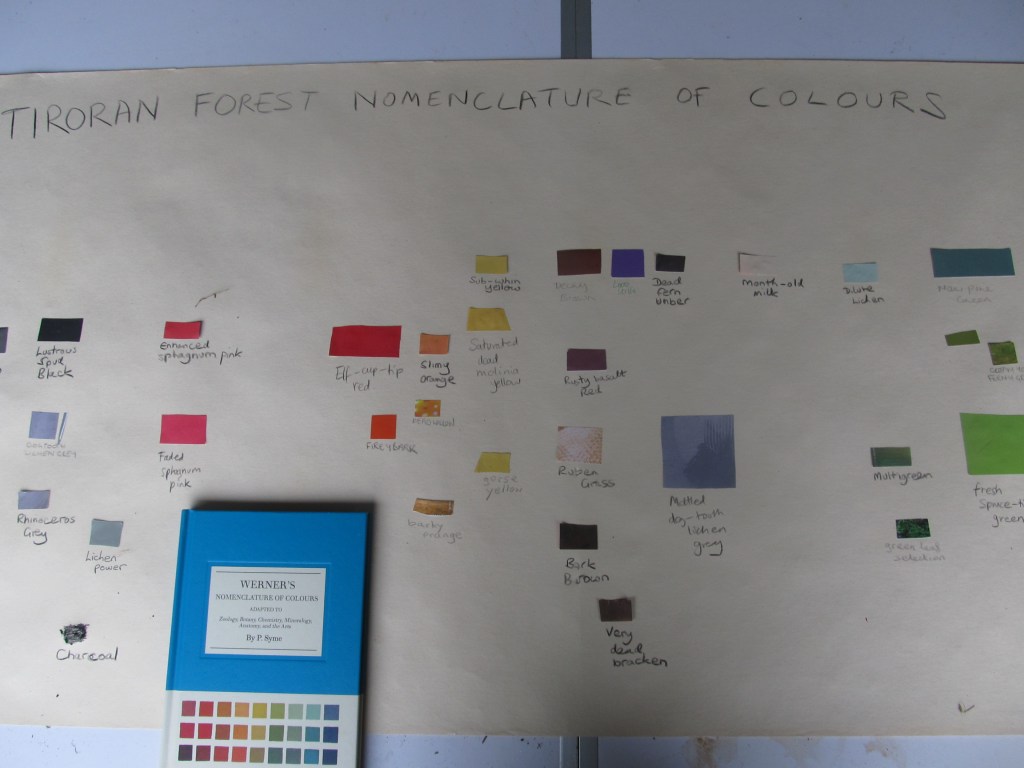 TIRORAN FOREST NOMENCLATURE OF COLOURS
Sub-whin
yellow
Dead
Fern
Umber
month-old
milk
Dilute
Lichen
Lustrous
Spud
Black
Enhanced
sphagnum pink
Eff-cup-tip
red
Slimy
orange
Saturated
dead
molinia
yellow
Rusty basalt
Red
Faded
Sphagnum
pink
FIREYBARK
gorse
yellow
Multigreen
fresh
green
Rhinoceros
Grey
Lichen
power
orange
Bark
Brown
dog-tooth
lichen
grey
green leaf
selection
Very
dead
bracken
Charcoal
WERNER'S
NOMENCLATURE OF COLOURS
ADAPTED TO
Zoology, Botany, Chemistry, Mineralogy,
Anatomy, and the Arts
By P. Syme